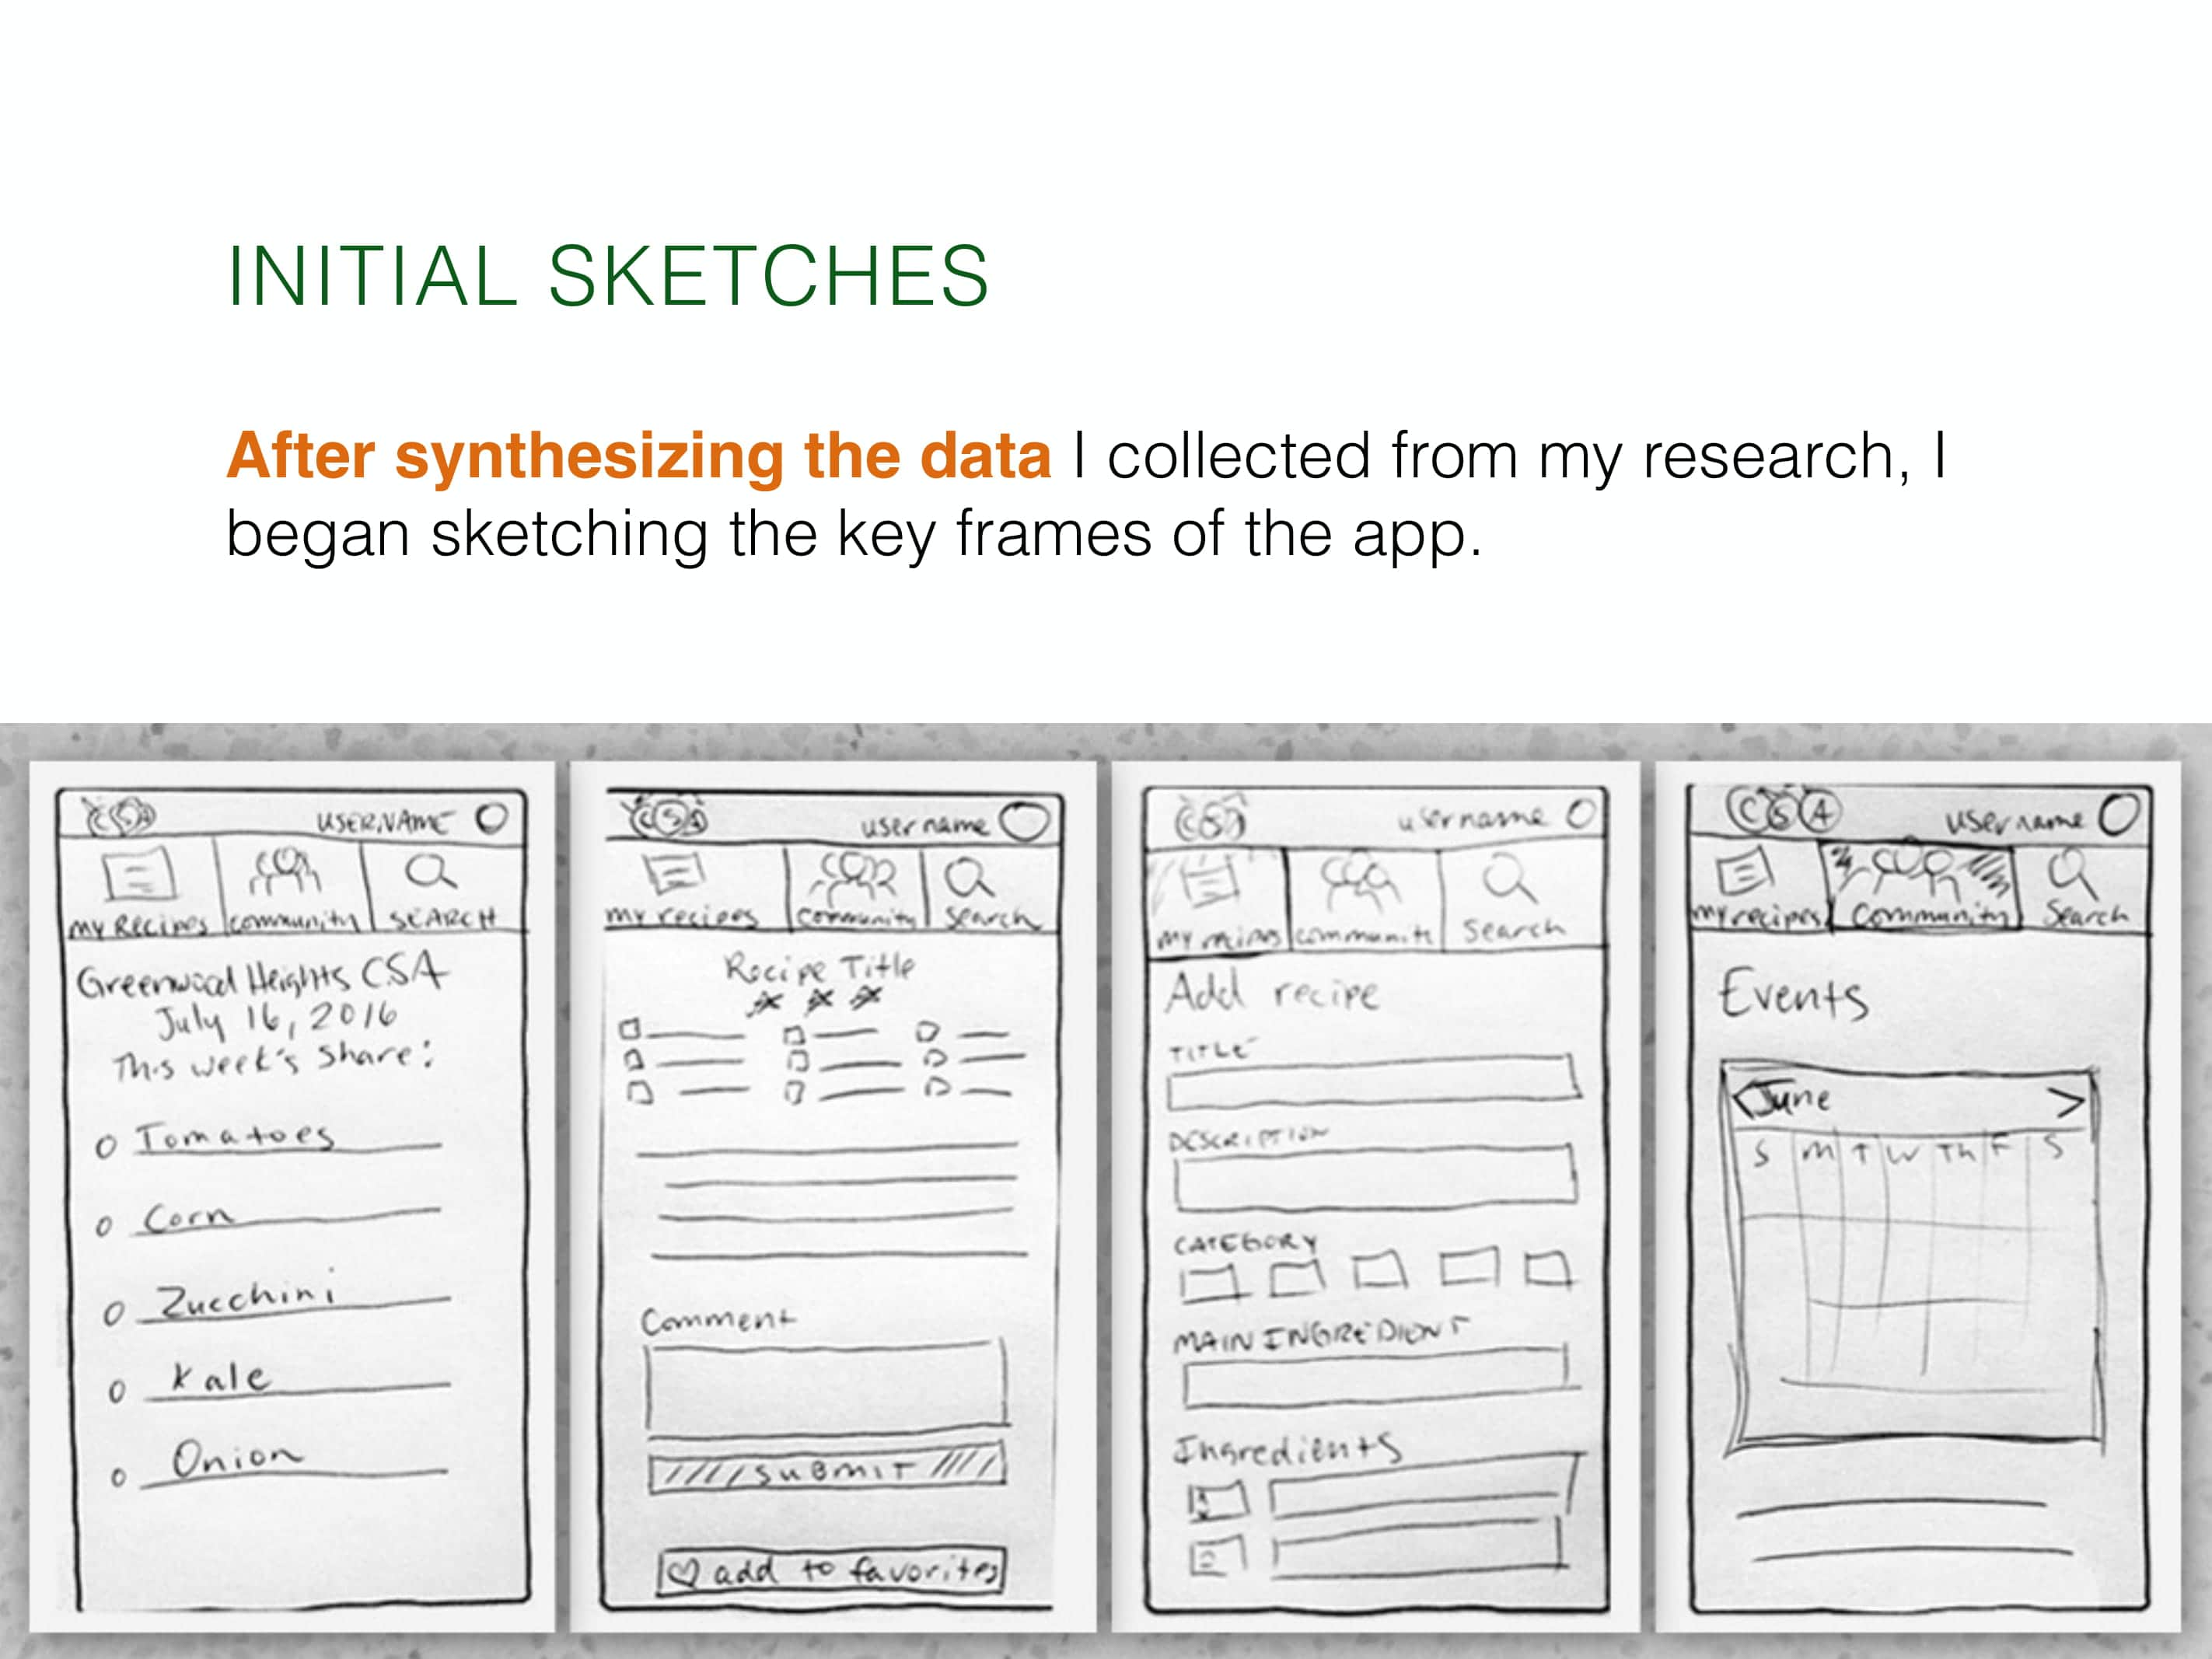 INITIAL SKETCHES
After synthesizing the data I collected from my research, I
began sketching the key frames of the app.
CSA USERNAME
MY RECIPES community SEARCH
Greenwood Heights CSA
July 16, 2016
This week's share:
Tomatoes
Corn
Zucchini
Kale
Onion
CSA username
my recipes community Search
Recipe Title
Comment
SUBMIT
add to favorites
CSA username
my recipes community Search
Add recipe
TITLE
DESCRIPTION
CATEGORY
MAIN INGREDIENT
Ingredients
1
2
CSA username
my recipes Community Search
Events
< June >
S M T W Th F S